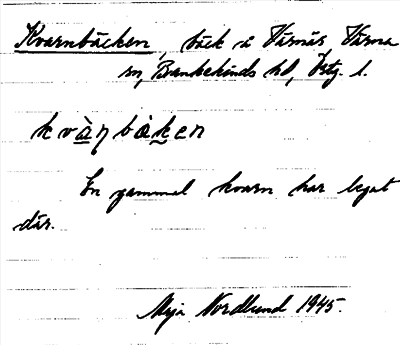 Kvarnbäcken, bäck å Värnäs, Värna
sn, Bankekinds hd, Östg. l.
kvàṇbàken
En gammal kvarn har legat
där.
Maja Nordlund 1945.